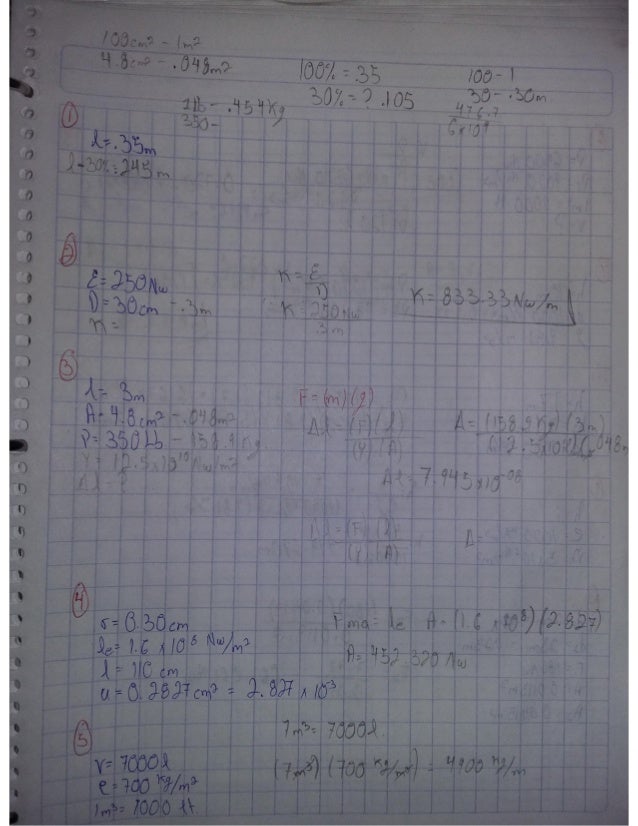 100cm² - 1m²
4.8cm² - .048m²
100% = .35
30% = ? .105
100 - 1
30 - .30m
1lb - .454Kg
350 -
①
l = .35m
l - 30% = 245m
②
E = 250Nw
D = 30cm - .3m
K =
K = E / D
K = 250Nw / .3m
K = 833.33 Nw/m
③
l = 3m
A = 4.8cm² - .048m²
P = 350Lb - 158.9Kg
Y = 12.5x10¹⁰ Nw/m²
Δl = ?
F = (m)(g)
Δl = (F)(l) / (Y)(A)
Δ = (158.9Kg)(3m)
Δl = 7.945x10⁻⁰⁸
Δl = (F)(l) / (Y)(A)
Δ =
④
r = 0.30cm
le = 1.6 x 10⁸ Nw/m²
l = 110 cm
a = 0.2827cm² = 2.827 x 10⁻³
Fma = le A = (1.6 x 10⁸)(2.827)
A = 452.320 Nw
⑤
V = 7000l
e = 700 Kg/m²
1m³ = 1000 lt
7m³ = 7000l
(7m³)(700 Kg/m³) = 4900 Kg/m